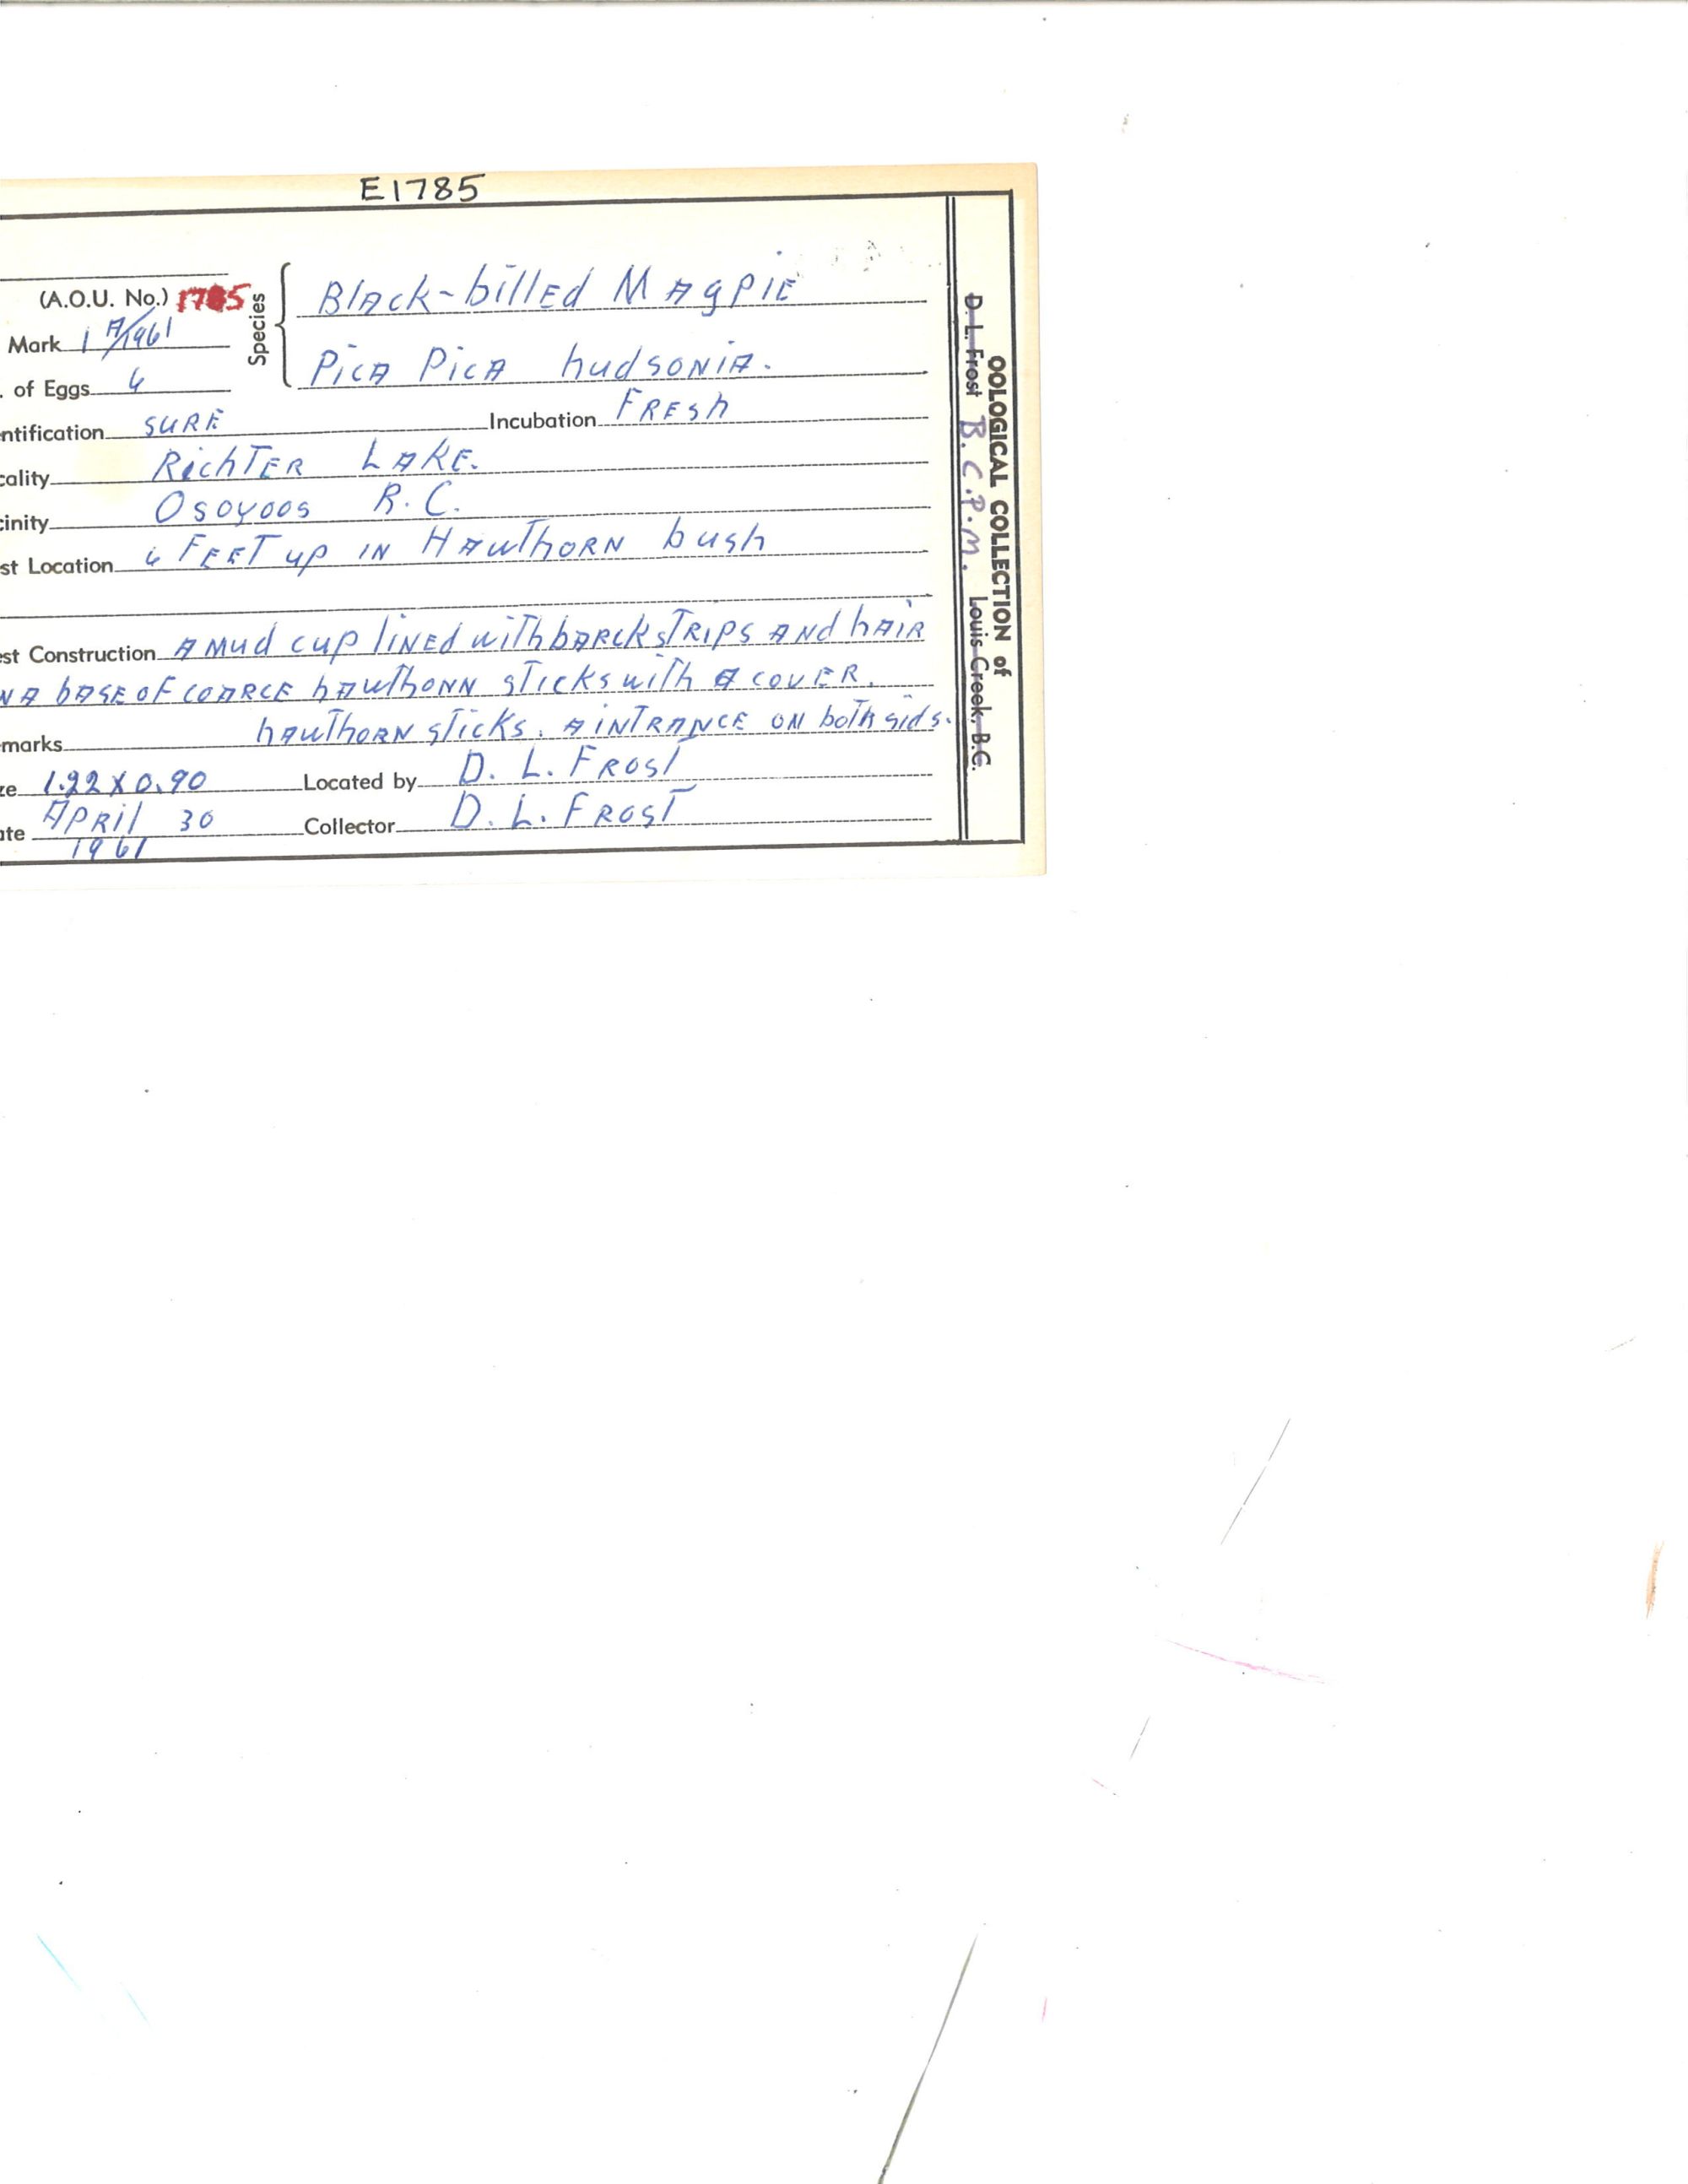 E1785
(A.O.U. No.) 1785
Species
BlAck-billEd MAgPIE
PicA PicA hudsoNiA.
Mark 1 A/1961
. of Eggs 6
ntification SURE Incubation FRESh
cality RichTER LAKE.
cinity Osoyoos B.C.
st Location 6 FEET up IN HAwThoRN bush
est Construction A Mud cup liNEd withbARck sTRIPS ANd hAiR
N A bASE oF coARCE hAwthoNN sTicks with A COVER.
marks hAwThoRN sTicks. A iNTRANCE ON both sids.
ze 1.22 X 0.90 Located by D. L. FRosT
ate APRil 30 Collector D. L. FRosT
1961
OOLOGICAL COLLECTION of
D. L. Frost B.C.P.M. Louis Creek, B.C.